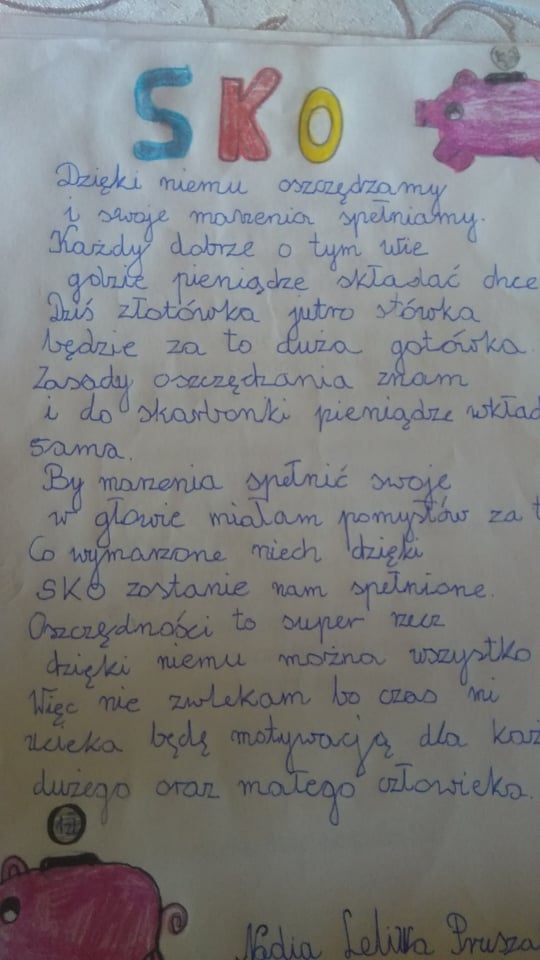 SKO
Dzięki niemu oszczędzamy
i swoje marzenia spełniamy.
Każdy dobrze o tym wie
gdzie pieniądze składać chce
Dziś złotówka jutro stówka
będzie za to duża gotówka.
Zasady oszczędzania znam
i do skarbonki pieniądze wkład
sama.
By marzenia spełnić swoje
w głowie miałam pomysłów za t
Co wymarzone niech dzięki
SKO zostanie nam spełnione.
Oszczędności to super rzecz
dzięki niemu można wszystko
Więc nie zwlekam bo czas mi
ucieka będę motywacją dla każ
dużego oraz małego człowieka.
1 zł
Nadia